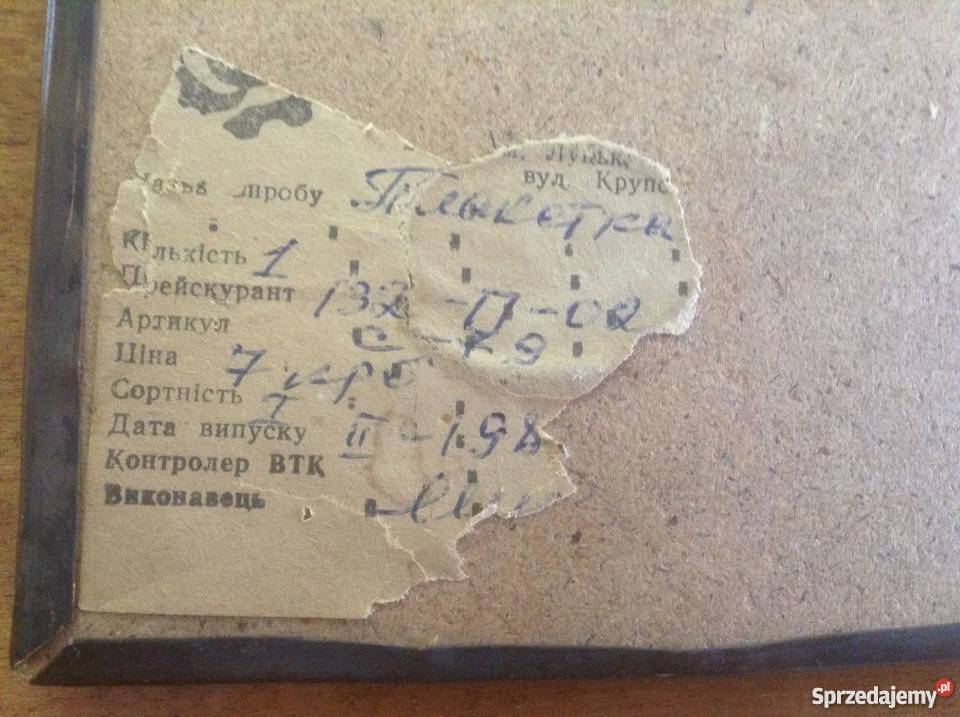 м. Луцьк
вул. Крупс
Назва виробу Плакетка
Кількість 1
Прейскурант 132-П-02
Артикул
Ціна 7 крб
Сортність I
Дата випуску II-198
Контролер ВТК
Виконавець
Sprzedajemy.pl